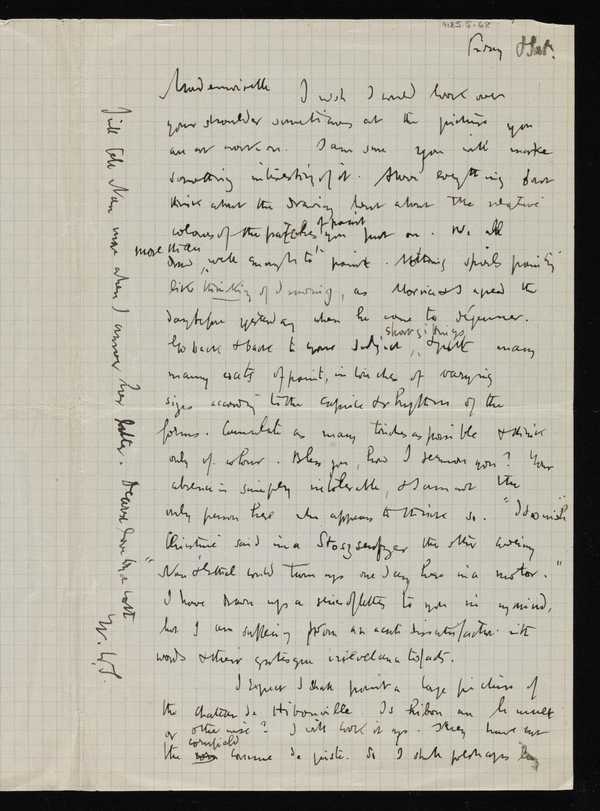 Friday
Mademoiselle I wish I could look over
your shoulder sometimes at the picture you
are at work on. I am sure you will make
something interesting of it. Above everything don't
think about the drawing but about the relative
colours of the patches of paint you put on. We all
draw more than well enough to paint. Nothing spoils painting
like thinking of drawing, as Morrice & I agreed the
day before yesterday when he came to déjeuner.
Go back & back to your subject, & put many
many coats of paint, in touches of varying
sizes according to the caprice & rhythm of the
forms. Cumulate as many touches as possible & think
only of colour. Bless you, how I sermon you! Your
absence is simply intolerable, & I am not the
only person here who appears to think so. "I do wish"
Christine said in a the other evening
"Nan & Ethel would turn up one day here in a motor."
I have drawn up a series of letters to you in my mind,
but I am suffering from an acute dissatisfaction with
words & their grotesque irrelevance to facts.
I expect I shall paint a large picture of
the chateau de Hibouville. Is hibou an h muet
or otherwise? I will look it up. They have cut
the cornfield comme de juste. So I shall perhaps
I'll tell Nan more when I answer her letter. Dearest love to you both
W. S.